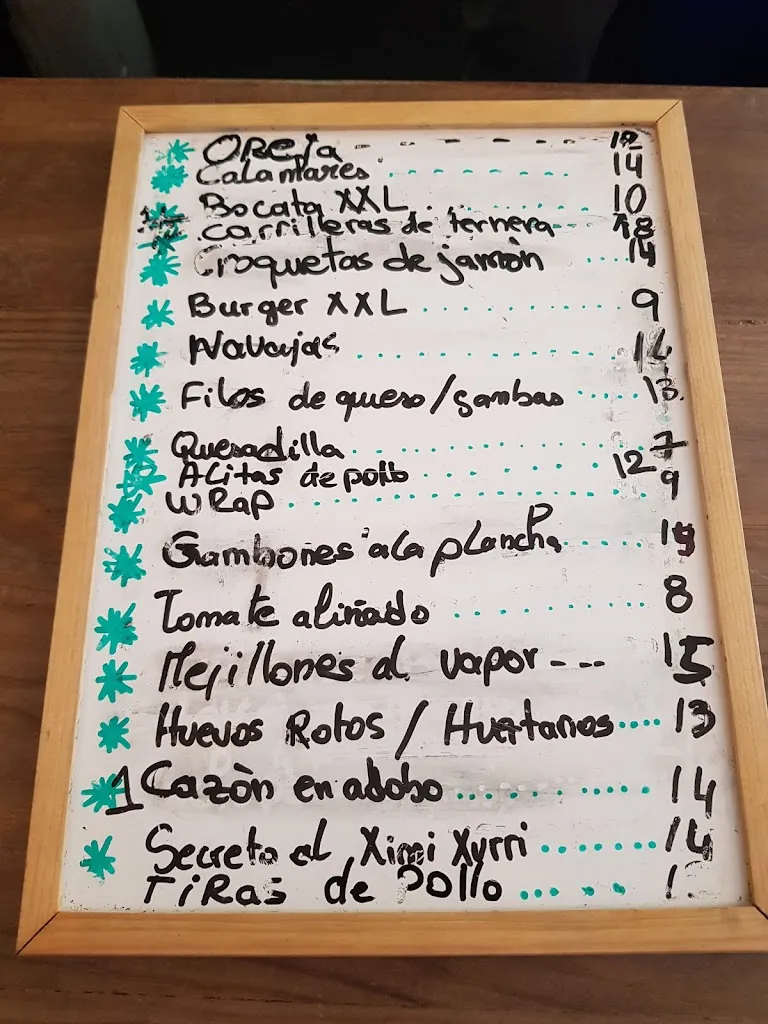 Oreja - - - - - 12
Calamares ........ 14
Bocata XXL ........ 10
Carrilleras de ternera -- 18
Croquetas de jamón ... 14
Burger XXL ........ 9
Navajas ........ 14
Filos de queso/gambas ..... 13
Quesadilla ........ 7
Alitas de pollo ........ 12
WRaP ........ 9
Gambones a la plancha .....
Tomate aliñado ........ 8
Mejillones al vapor --- 15
Huevos Rotos / Huertanos .... 13
1 Cazòn en adobo ........ 14
Secreto al Ximi Xurri ....... 14
TiRas de Pollo ....